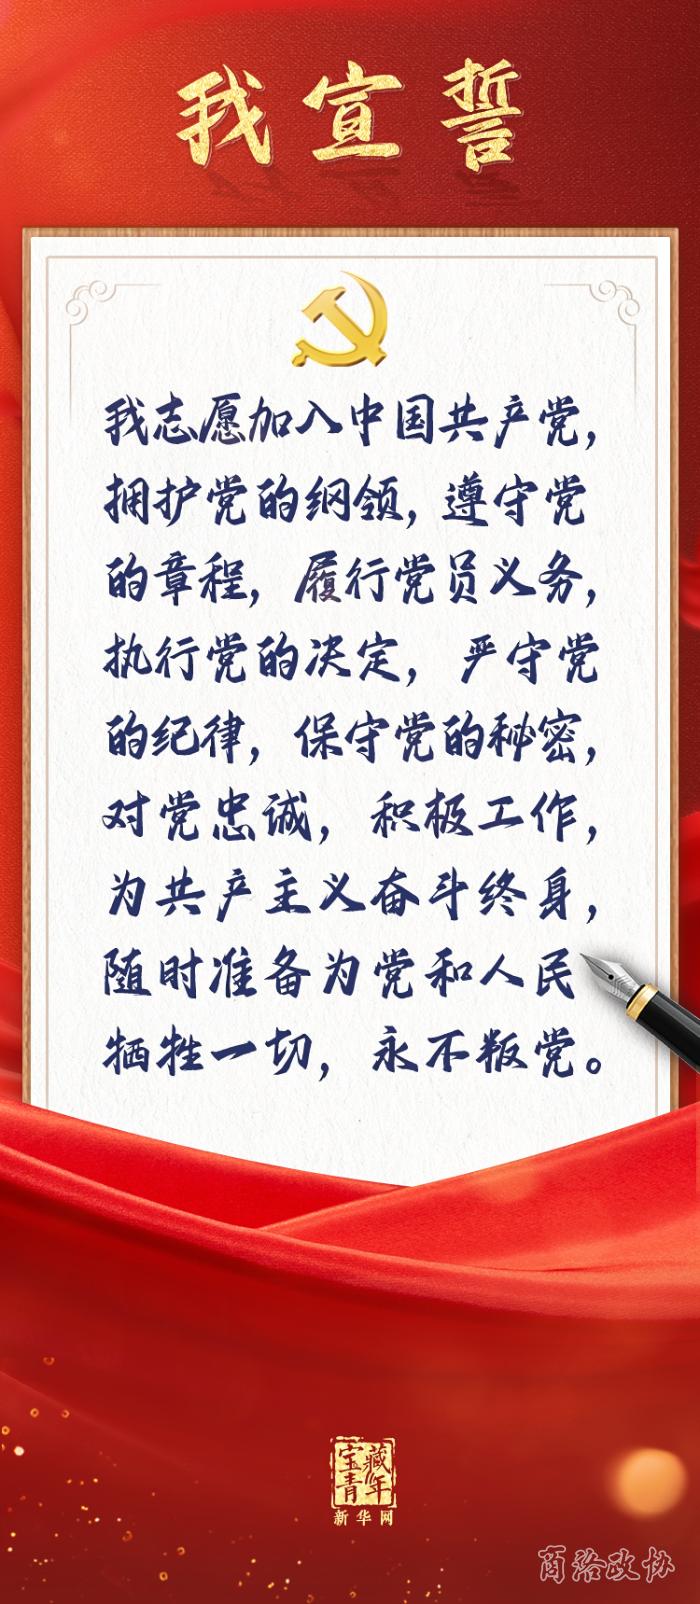 我宣誓
我志愿加入中国共产党，
拥护党的纲领，遵守党
的章程，履行党员义务，
执行党的决定，严守党
的纪律，保守党的秘密，
对党忠诚，积极工作，
为共产主义奋斗终身，
随时准备为党和人民
牺牲一切，永不叛党。
宝藏
青年
新华网
商洛政协